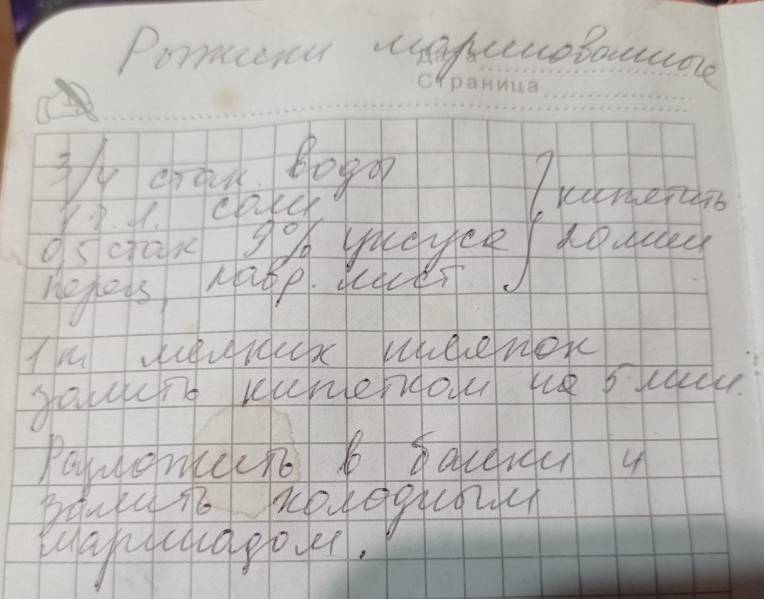 Рыжики маринованные
Дата
Страница
3/4 стак. воды
1 г. л. соли
0,5 стак 9% уксуса
перец, лавр. лист
кипятить
20 мин
1 кг мелких шляпок
залить кипятком на 5 мин.
Разложить в банки и
залить холодным
маринадом.